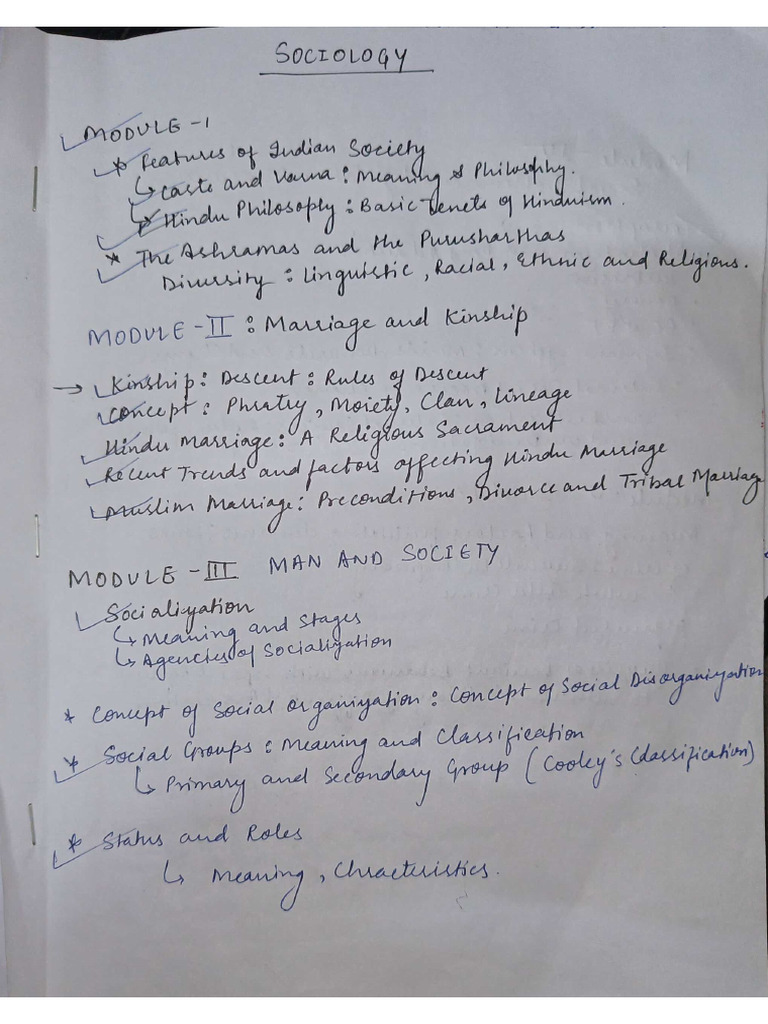 SOCIOLOGY
MODULE-1
* Features of Indian Society
↳ Caste and Varna : Meaning & Philosophy.
↳ * Hindu Philosophy : Basic Tenets of Hinduism.
* The Ashramas and the Purusharthas
Diversity : Linguistic, Racial, Ethnic and Religious.
MODULE-II : Marriage and Kinship
→ Kinship : Descent : Rules of Descent
Concept : Phratry, Moiety, Clan, Lineage
Hindu Marriage : A Religious Sacrament
Recent Trends and factors affecting Hindu Marriage
Muslim Marriage : Preconditions, Divorce and Tribal Marriage
MODULE-III MAN AND SOCIETY
Socialization
↳ Meaning and Stages
↳ Agencies of Socialization
* Concept of Social organization : Concept of Social Disorganization
* Social Groups : Meaning and Classification
↳ Primary and Secondary Group (Cooley's Classification)
* Status and Roles
↳ Meaning, Chracteristics.